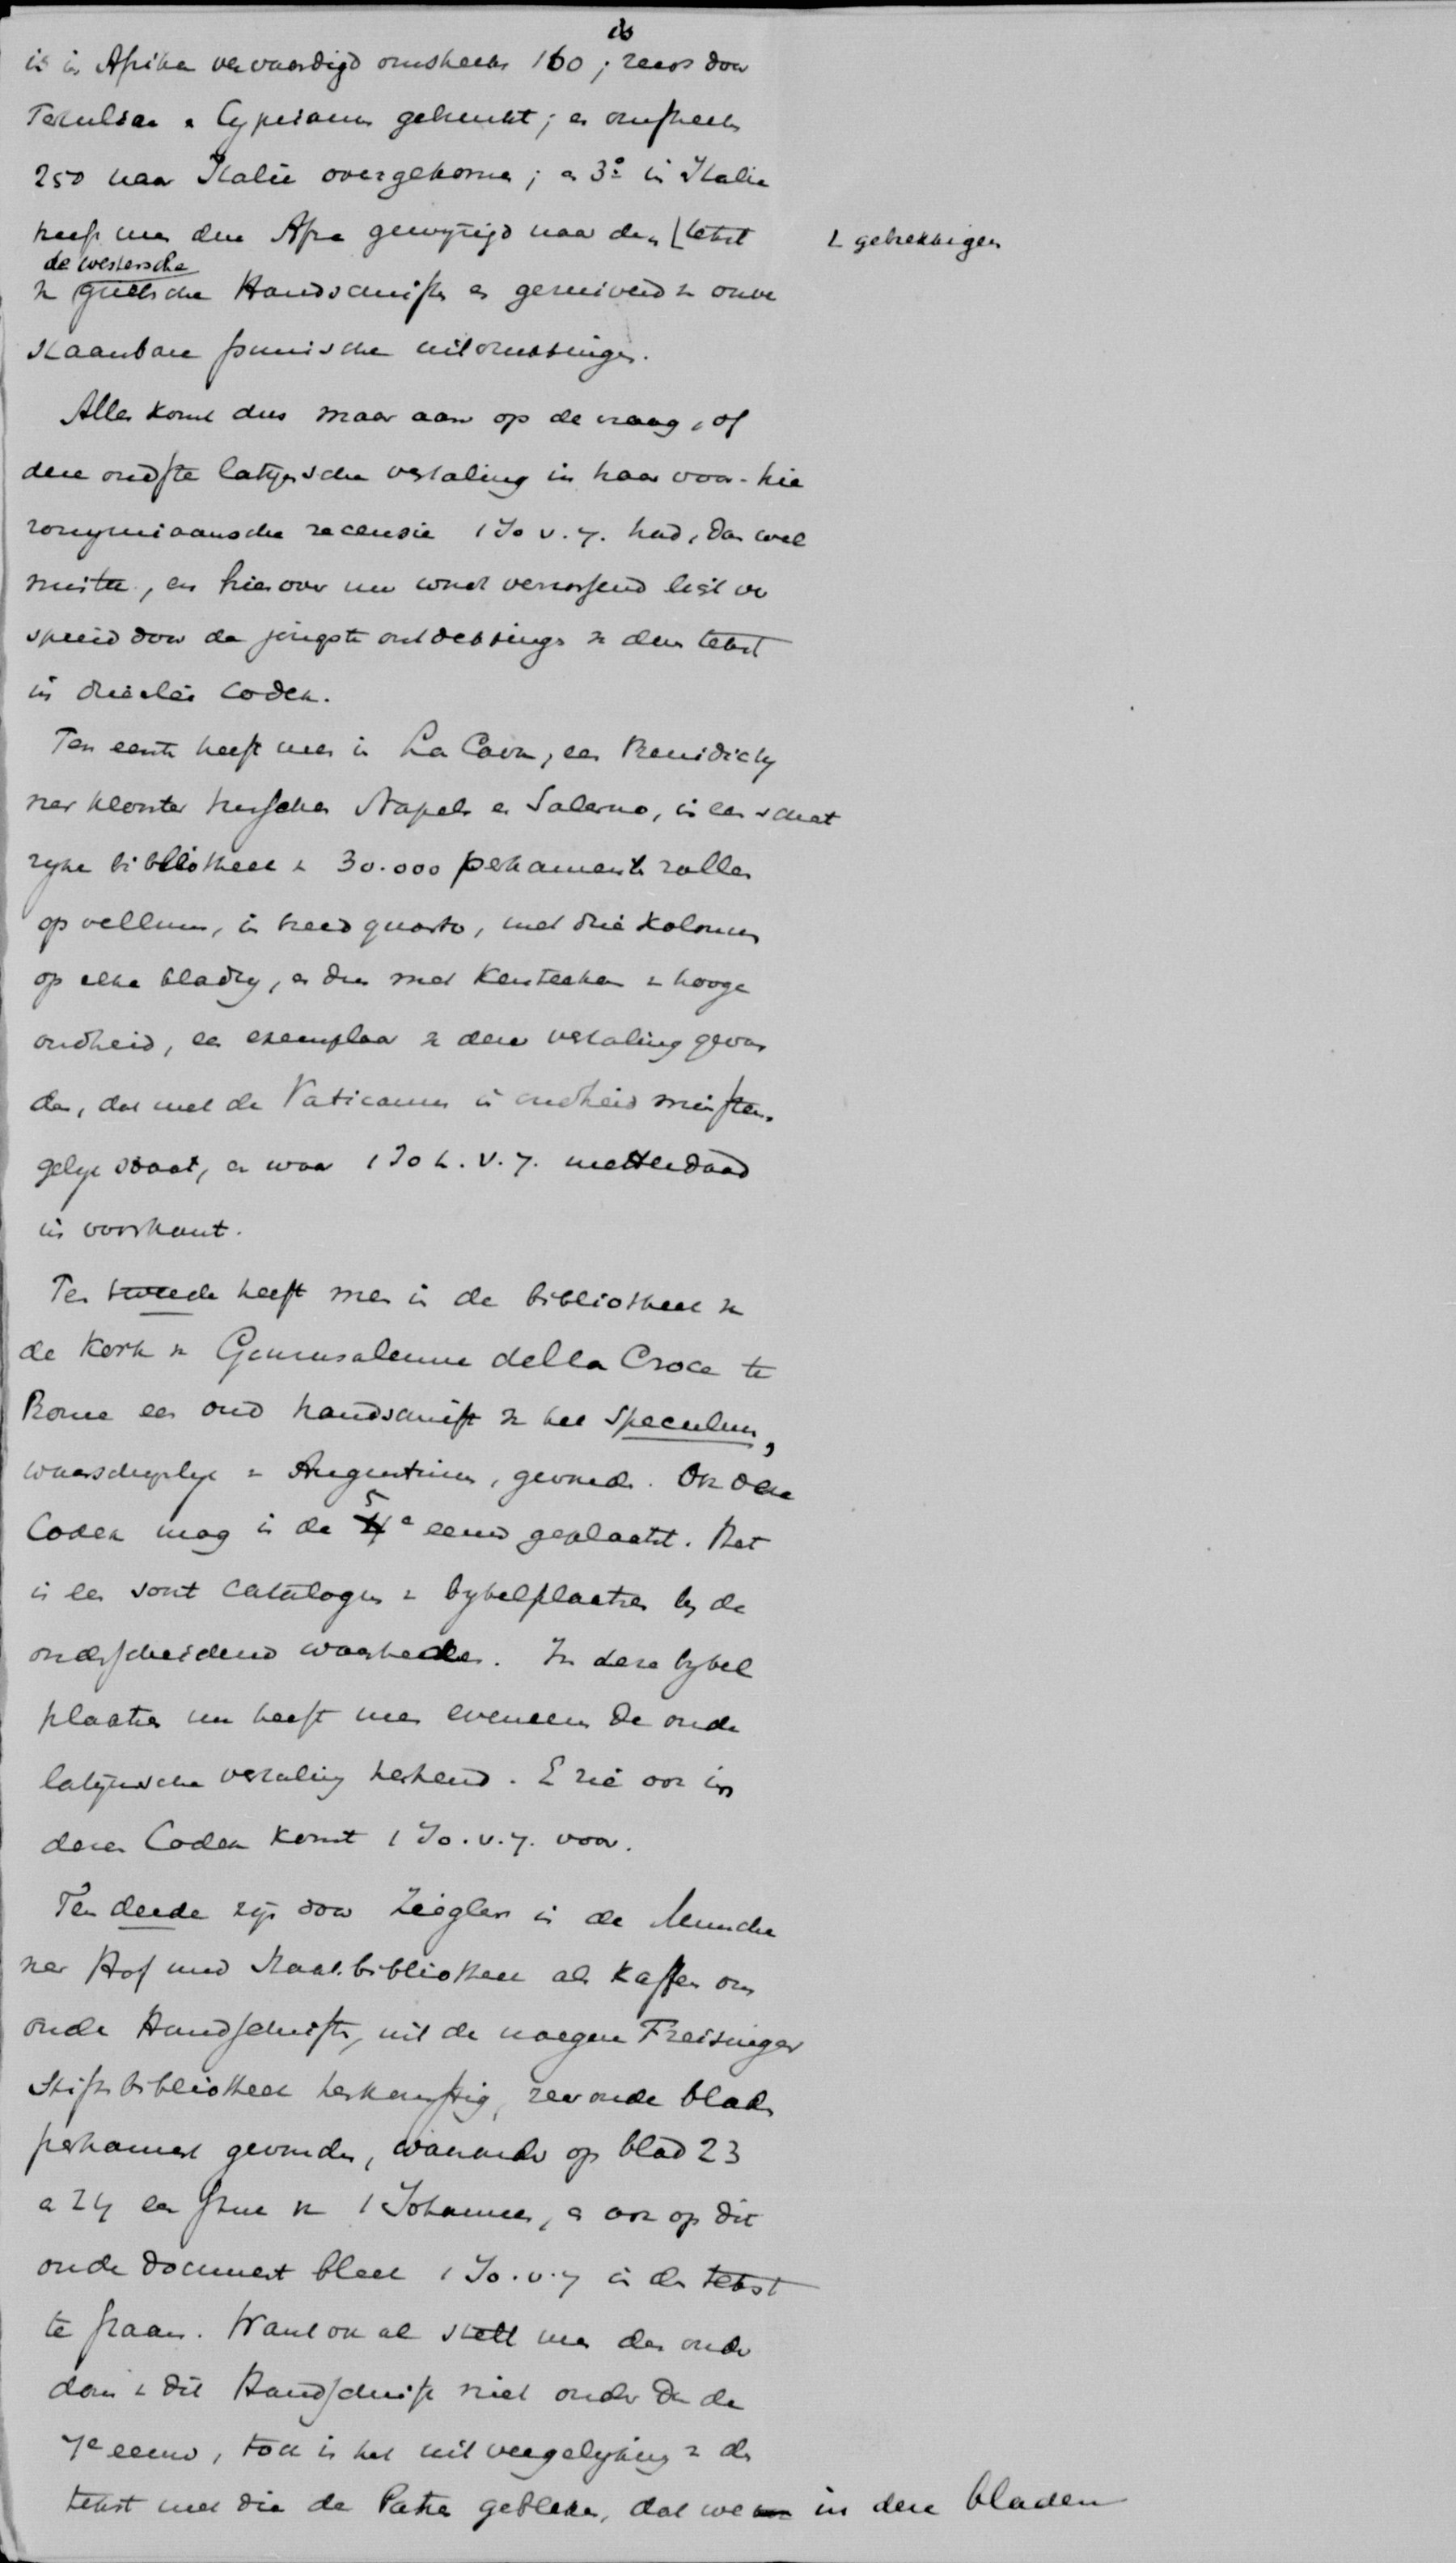 is
is in Afrika vervaardigd omstreeks 160; reeds door
Tertulian & Cyprianus gebruikt; en omstreeks
250 naar Italië overgekomen; en 3º in Italie
heeft men den Afra gewyzigd naar den tekst
gebrekkigen
de westersche
grieksche Handschriften en gezuiverd v onver
staanbare punische uitdrukkingen.
Alles komt dus maar aan op de vraag, of
deze oudste latynsche vertaling in haar voor-hie
ronymiaansche recensie 1 Jo v. 7. had, dan wel
miste, en hierover nu wordt verrassend licht ver
spreid door de jongste ontdekkingen v den tekst
in drieërlei Codex.
Ten eerste heeft men in La Cava, een Benidicty
ner klooster tusschen Napels en Salerno, in een schat
ryke bibliotheek v 30.000 perkamenten rollen
op vellum, in breed quarto, met drie kolommen
op elke bladzy, en dus met Kenteeken v hooge
oudheid, een exemplaar v deze vertaling gevon
den, dat met de Vaticanus in oudheid minstens
gelyk staat, en waar 1 Joh. v. 7. metterdaad
in voorkomt.
Ten tweede heeft men in de bibliotheek v
de Kerk v Gerusalemme della Croce te
Rome een oud handschrift v het Speculum,
waarschynlyk v Augustinus, gevonden. Ook deze
Codex mag in de 5e eeuw geplaatst. Het
is een soort catalogus v bybelplaatsen by de
onderscheidene waarheden. In deze bybel
plaatsen nu heeft men eveneens de oude
latynsche vertaling herkend. E zie ook in
dezen Codex komt 1 Jo. v. 7. voor.
Ten derde zyn door Ziegler in de Munche
ner Hof und Staatsbibliotheek als kaften om
oude Handschriften, uit de vroegere Freisinger
Stiftsbibliotheek herkomstig, zeer oude bladen
perkament gevonden, waaronder op blad 23
en 24 een stuk v 1 Johannes, en ook op dit
oude document bleek 1 Jo. v. 7 in den tekst
te staan. Want ook al stelt men den ouder
dom v dit Handschrift niet ouder dan de
7e eeuw, toch is het uit vergelyking v den
tekst met die der Patres gebleken, dat we in deze bladen